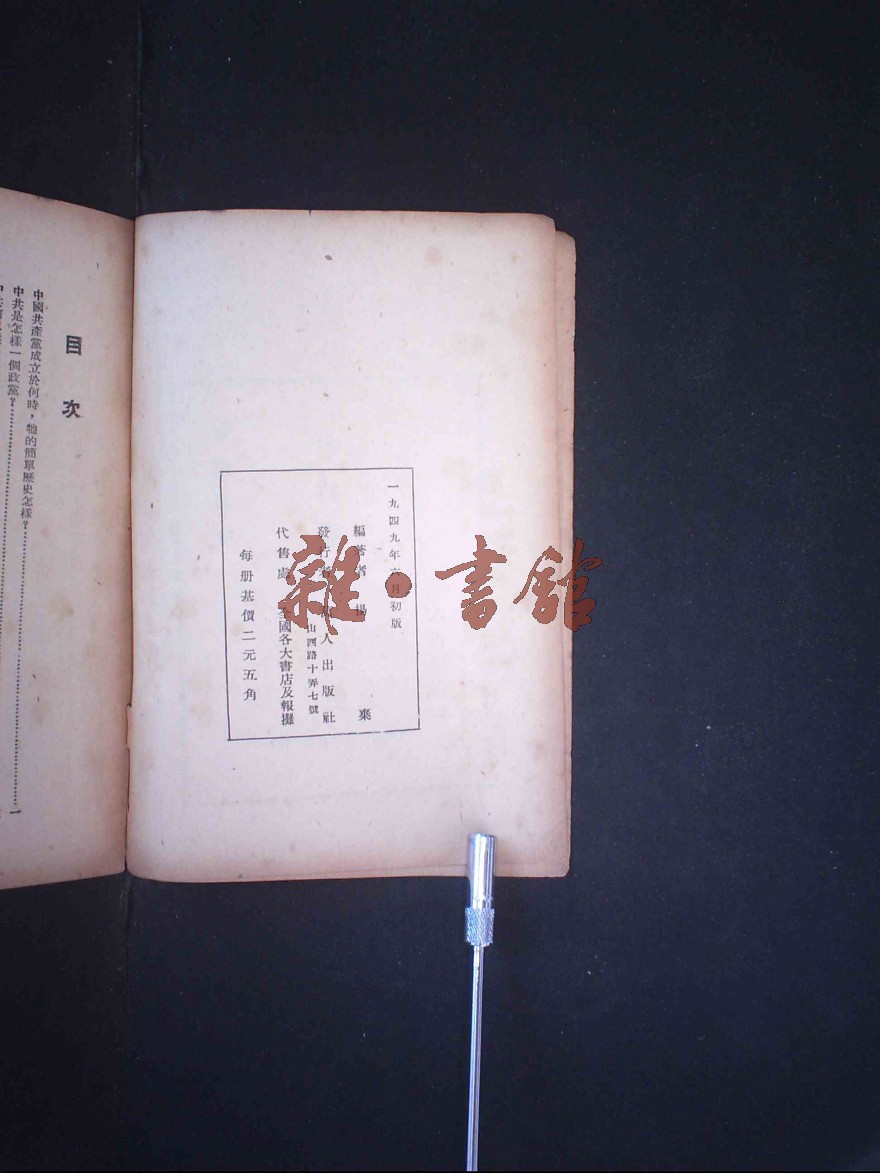 一九四九年六月初版
編著者 楊 棄
發行者 人出版社
山西路十弄七號
代售處 全國各大書店及報攤
每册基價二元五角
目次
中國共產黨成立於何時，牠的簡單歷史怎樣？
中共是怎樣一個政黨？……一
雜·書館